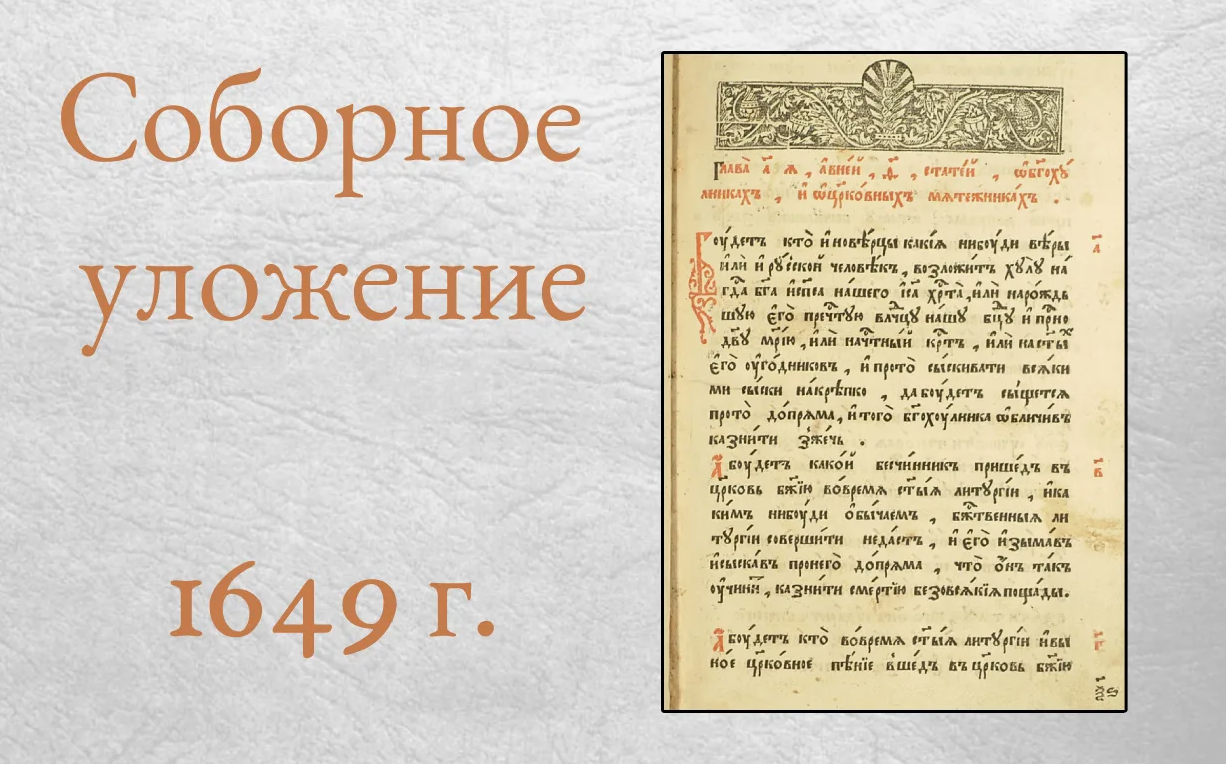 Соборное
уложение
1649 г.
Глава̀ а҃ я , а҆вне́й , ѳ҃ , стате́й , ѡ҆бг҃оху́
лникахъ , и҆ ѡ҆цр҃ко́вныхъ мѧте́жника́хъ .
Боу́детъ кто̀ и҆новѣ́рцы какі́ѧ нибоу́ди вѣ́ры
и҆лѝ и҆ рꙋ́сской человѣ́къ , возложи́тъ хꙋлꙋ̀ на́
гд҇а бг҃а и҆ сп҃са на́шего і҆с҃а хр҇та̀ , и҆лѝ наро́ждь
шꙋю є҆го̀ преч҇тꙋю влⷣчцꙋ на́шꙋ бц҃ꙋ и҆ при҇но
дв҃ꙋ мр҃і́ю , и҆лѝ на ч҇тны́й кр҇тъ , и҆лѝ на ст҃ы́х
є҆го̀ оу҆го́дниковъ , и҆ прото̀ сы́скивати всѧ́ки
ми сы́ски накрѣ́пко , да боу́детъ сы́щетсѧ
прото̀ до́прѧма , и҆ того̀ бг҃охоу́лника ѡ҆бличи́въ
казни́ти зже́чь .
а҆ боу́детъ како́й бесчи́нникъ прише́дъ въ
цр҃ковь бж҃їю во́времѧ ст҃ы́ѧ литꙋргі́и , и҆ ка
ки́мъ нибоу́ди ѻ҆бы́чаемъ , бж҇твенныѧ ли
тꙋргі́и соверши́ти неда́стъ , и҆ є҆го̀ и҆зыма́въ
и҆ сыска́въ пронего̀ до́прѧма , что̀ ѻ҆́нъ та́къ
оу҆чини́т , казни́ти сме́ртїю безовсѧ́кїѧ поща́ды.
а҆ боу́детъ кто̀ во́времѧ ст҃ы́ѧ литꙋргі́и и҆ вы
но́е цр҃ко́вное пѣ́нїе вше́дъ въ цр҃ковь бж҃їю
а
в
г